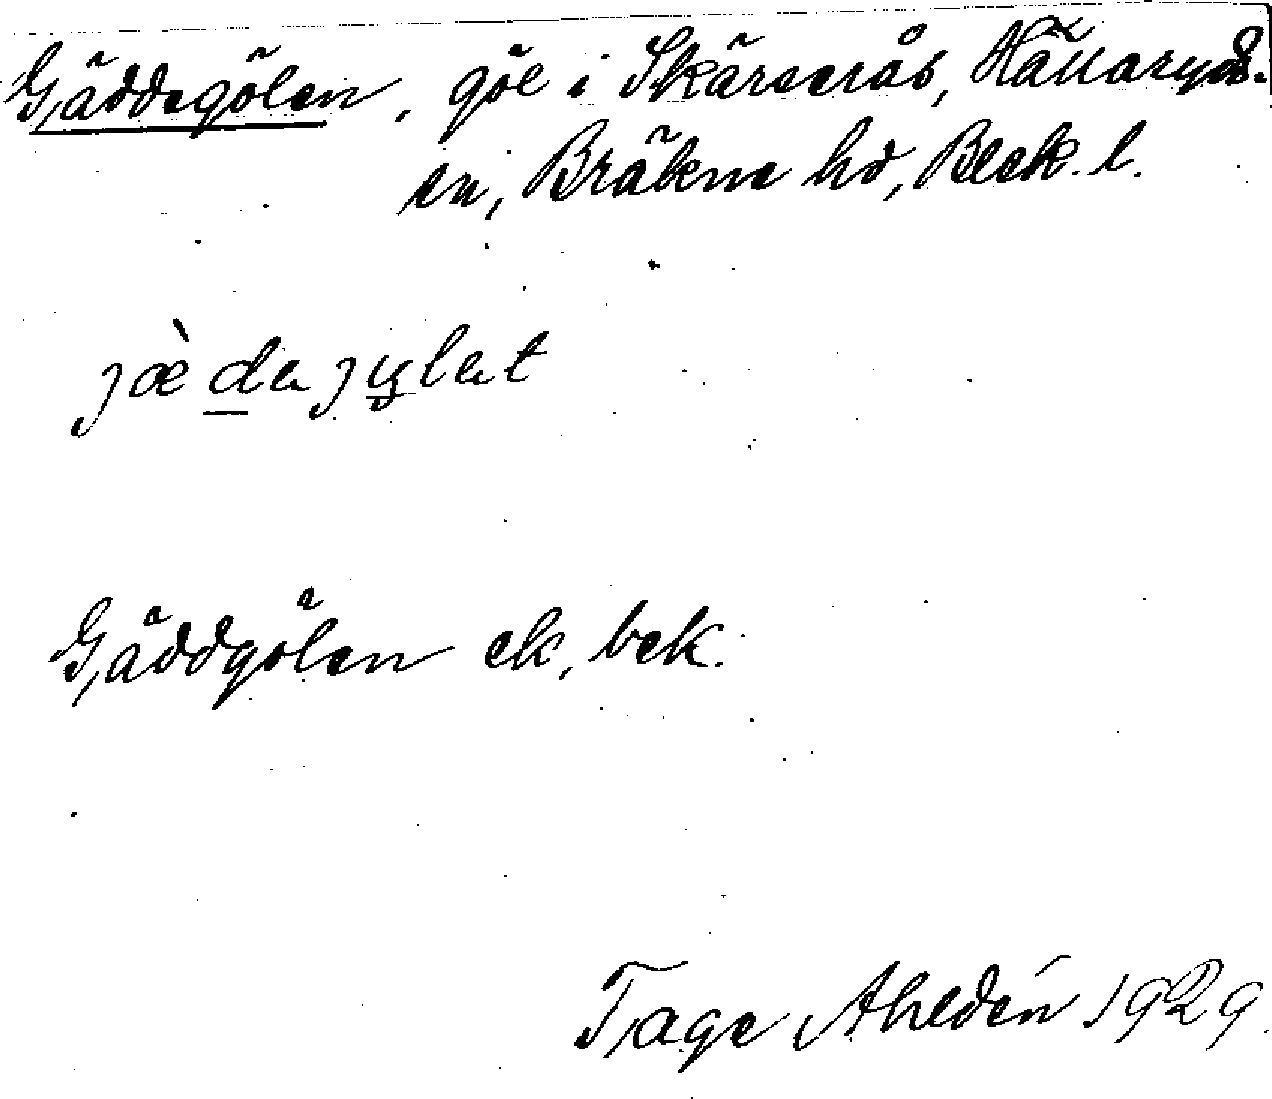 Gäddegölen, göl i Skärserås, Hällaryds-
sn, Bräkne hd, Blek. l.
jæ̀dajylat
Gäddgölen ek, bek.
Tage Ahldén 1929.